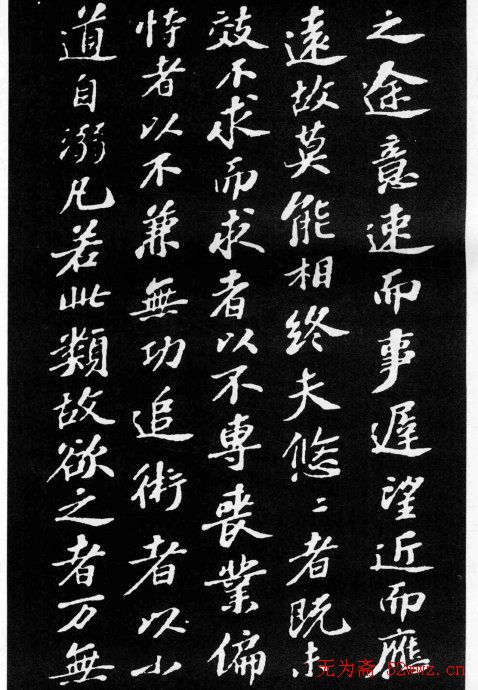 之途意速而事遲望近而應
遠故莫能相終夫悠〻者既未
效不求而求者以不專喪業偏
恃者以不兼無功追術者以小
道自溺凡若此類故欲之者万無
无为斋 52wwz.cn